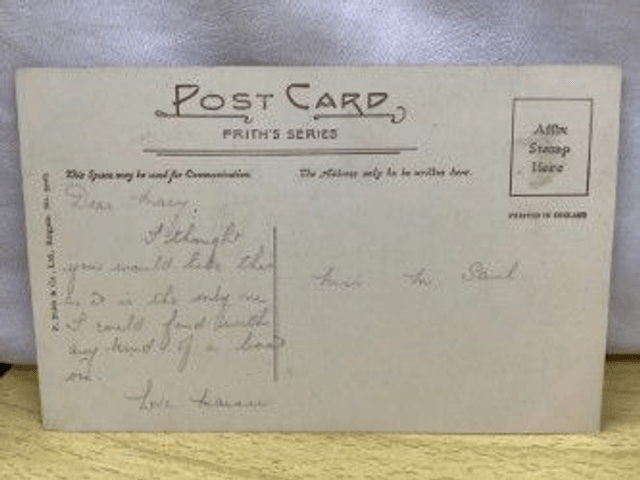 POST CARD
FRITH'S SERIES
Affix
Stamp
Here
This Space may be used for Communication.
The Address only to be written here.
PRINTED IN ENGLAND
Dear Mary,
I thought
you would like this
is the only
I could find with
any kind of a boat
on.
Love
M. Saul
F. Frith & Co., Ltd., Reigate.